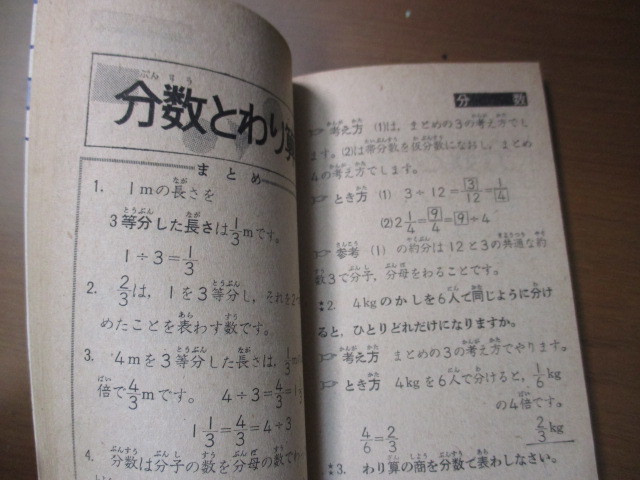 分数とわり算
まとめ
1. 1mの長さを
3等分した長さは1/3mです。
1÷3=1/3
2. 2/3は，1を3等分し，それを2つ
めたことを表わす数です。
3. 4mを3等分した長さは，1/3m
倍で4/3mです。 4÷3=4/3=1
1 1/3=4/3=4÷3
4. 分数は分子の数を分母の数で
分数
考え方 (1)は，まとめの3の考え方でし
ます。(2)は帯分数を仮分数になおし，まとめ
4の考え方でします。
とき方 (1) 3÷12=3/12=1/4
(2) 2 1/4=9/4=9÷4
参考 (1)の約分は12と3の共通な約
数3で分子，分母をわることです。
2. 4kgのかしを6人で同じように分け
ると，ひとりどれだけになりますか。
考え方 まとめの3の考え方でやります。
とき方 4kgを6人で分けると，1/6kg
の4倍です。
4/6=2/3
2/3kg
3. わり算の商を分数で表わしなさい。